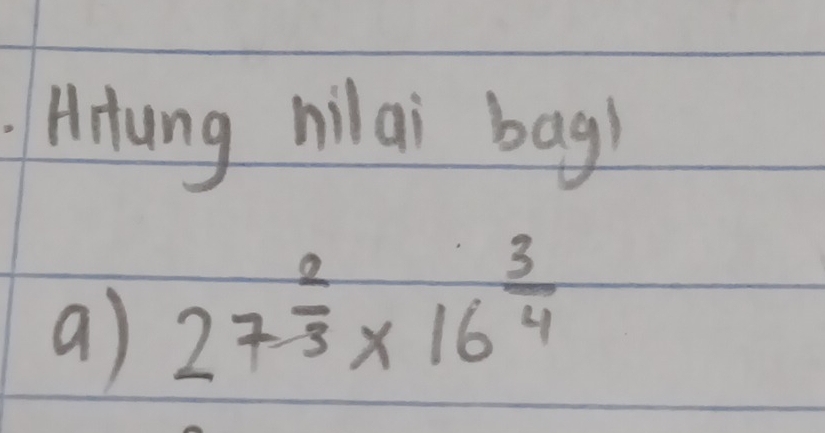 . Hitung nilai bagi
a) 27^{2/3} x 16^{3/4}